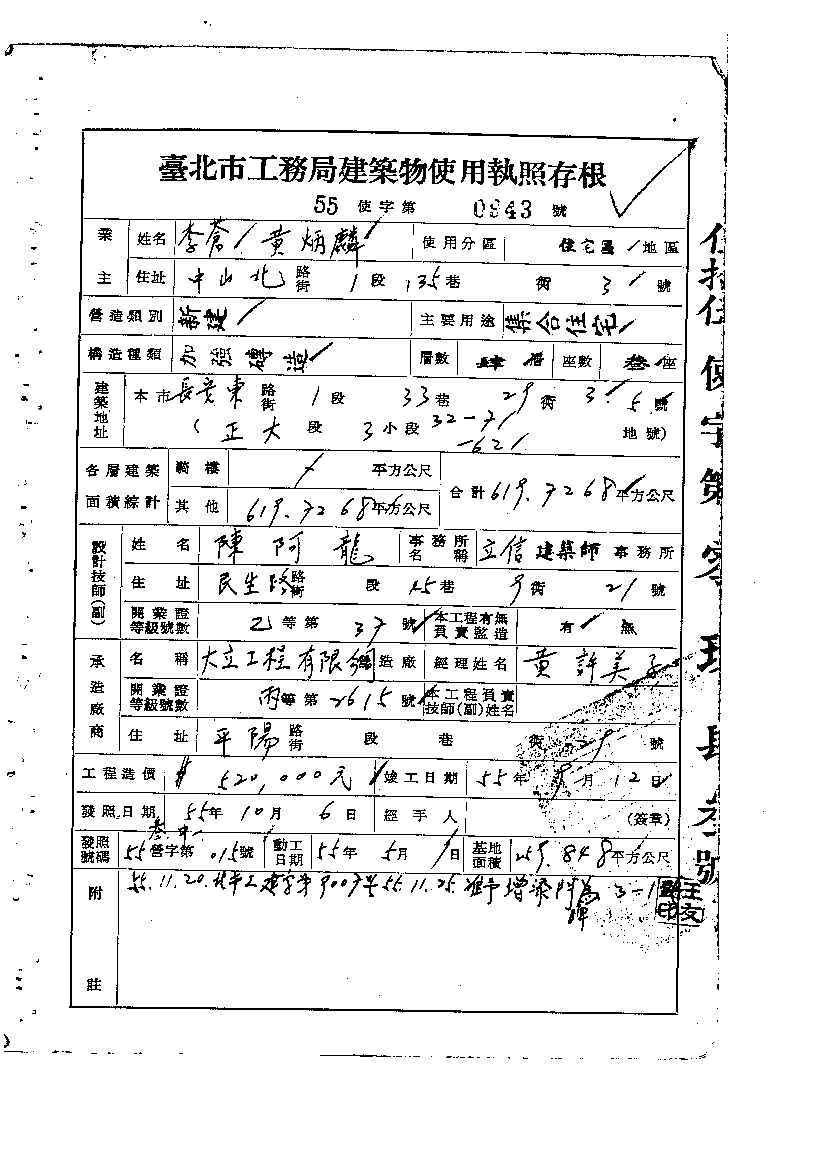 臺北市工務局建築物使用執照存根
55 使字第 0943 號
業主 姓名 李蒼 黃炳麟 使用分區 住宅區 地區
住址 中山北 路街 1 段 135 巷 衖 3 號
營造類別 新建 主要用途 集合住宅
構造種類 加強磚造 層數 肆層 座數 叁座
建築地址 本市 長安東 路街 1 段 33 巷 29 衖 3 5 號
( 正大 段 3 小段 32-71 -621 地號)
各層建築面積綜計 騎樓 平方公尺 合計 619.7268 平方公尺
其他 619.7268 平方公尺
設計技師(副) 姓名 陳阿龍 事務所名稱 立信建築師 事務所
住址 民生路 路街 段 45 巷 9 衖 21 號
開業證等級號數 乙 等第 37 號 本工程有無負責監造 有 無
承造廠商 名稱 大立工程有限 營造廠 經理姓名 黃許美子
開業證等級號數 丙 等第 2615 號 本工程負責技師(副)姓名
住址 平陽 路街 段 巷 衖 29 號
工程造價 $ 520,000元 竣工日期 55年 9月 12日
發照日期 55年 10月 6日 經手人 (簽章)
發照號碼 55 營字第 015 號 動工日期 55年 5月 1日 基地面積 259.848 平方公尺
附註 55.11.20. 55.11.25. 准予增添門牌為 3-1
使字第零玖肆叁號